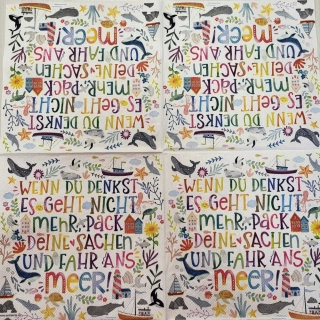 WENN DU DENKST
ES GEHT NICHT
MEHR.. PACK
DEINE SACHEN
UND FAHR ANS
MEER!
WENN DU DENKST
ES GEHT NICHT
MEHR.. PACK
DEINE SACHEN
UND FAHR ANS
MEER!
WENN DU DENKST
ES GEHT NICHT
MEHR.. PACK
DEINE SACHEN
UND FAHR ANS
MEER!
WENN DU DENKST
ES GEHT NICHT
MEHR.. PACK
DEINE SACHEN
UND FAHR ANS
MEER!